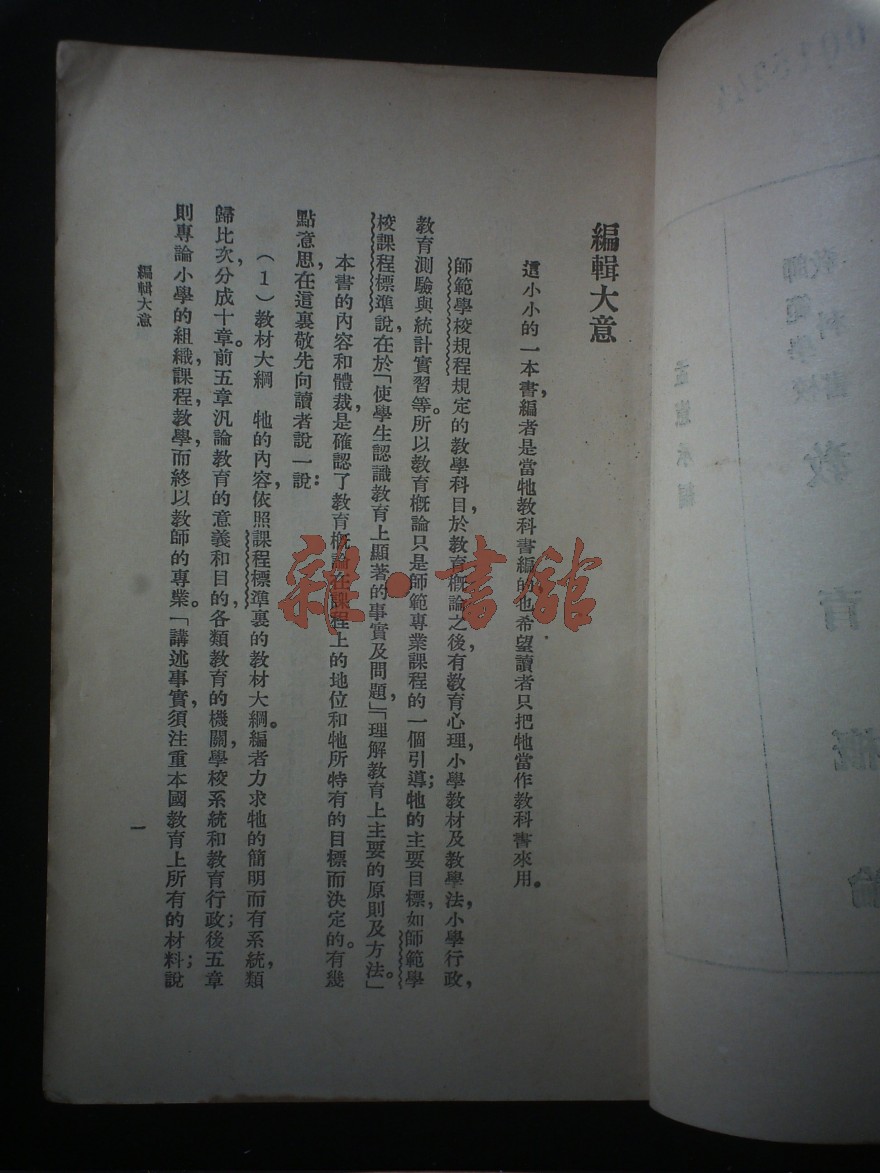 編輯大意
這小小的一本書,編者是當牠教科書編的,也希望讀者只把牠當作教科書來用。
師範學校規程規定的教學科目,於教育概論之後,有教育心理,小學教材及教學法,小學行政,
教育測驗與統計,實習等。所以教育概論只是師範專業課程的一個引導;牠的主要目標,如師範學
校課程標準說,在於「使學生認識教育上顯著的事實及問題」,「理解教育上主要的原則及方法。」
本書的內容和體裁,是確認了教育概論在課程上的地位和牠所特有的目標而決定的。有幾
點意思,在這裏敬先向讀者說一說:
(1)教材大綱 牠的內容,依照課程標準裏的教材大綱。編者力求牠的簡明而有系統,類
歸比次,分成十章。前五章汎論教育的意義和目的,各類教育的機關,學校系統和教育行政;後五章
則專論小學的組織,課程,教學,而終以教師的專業。「講述事實,須注重本國教育上所有的材料;說
編輯大意
一
雜·書館
師範學校
教科書
孟憲承編
教育概論